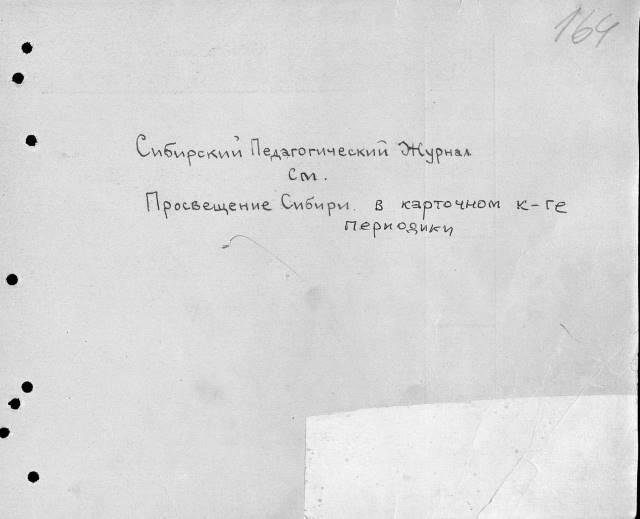 164
Сибирский Педагогический Журнал
см.
Просвещение Сибири. в карточном к-ге
периодики